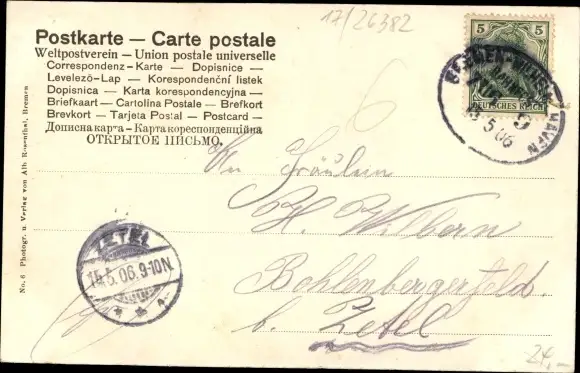 17/26382
Postkarte — Carte postale
Weltpostverein — Union postale universelle
Correspondenz-Karte — Dopisnice —
Levelező-Lap — Korespondenční listek
Dopisnica — Karta korespondencyjna —
Briefkaart — Cartolina Postale — Brefkort
Brevkort — Tarjeta Postal — Postcard —
Дописна карта — Карта кореспонденційна
ОТКРЫТОЕ ПІСЬМО.
5 5
DEUTSCHES REICH
5 06
6
An Fräulein
Bohlenbergerfeld.
b. Zetel
ZETEL
15.5.06.9-10N
No. 6 Photogr. u. Verlag von Alb. Rosenthal, Bremen
24,-